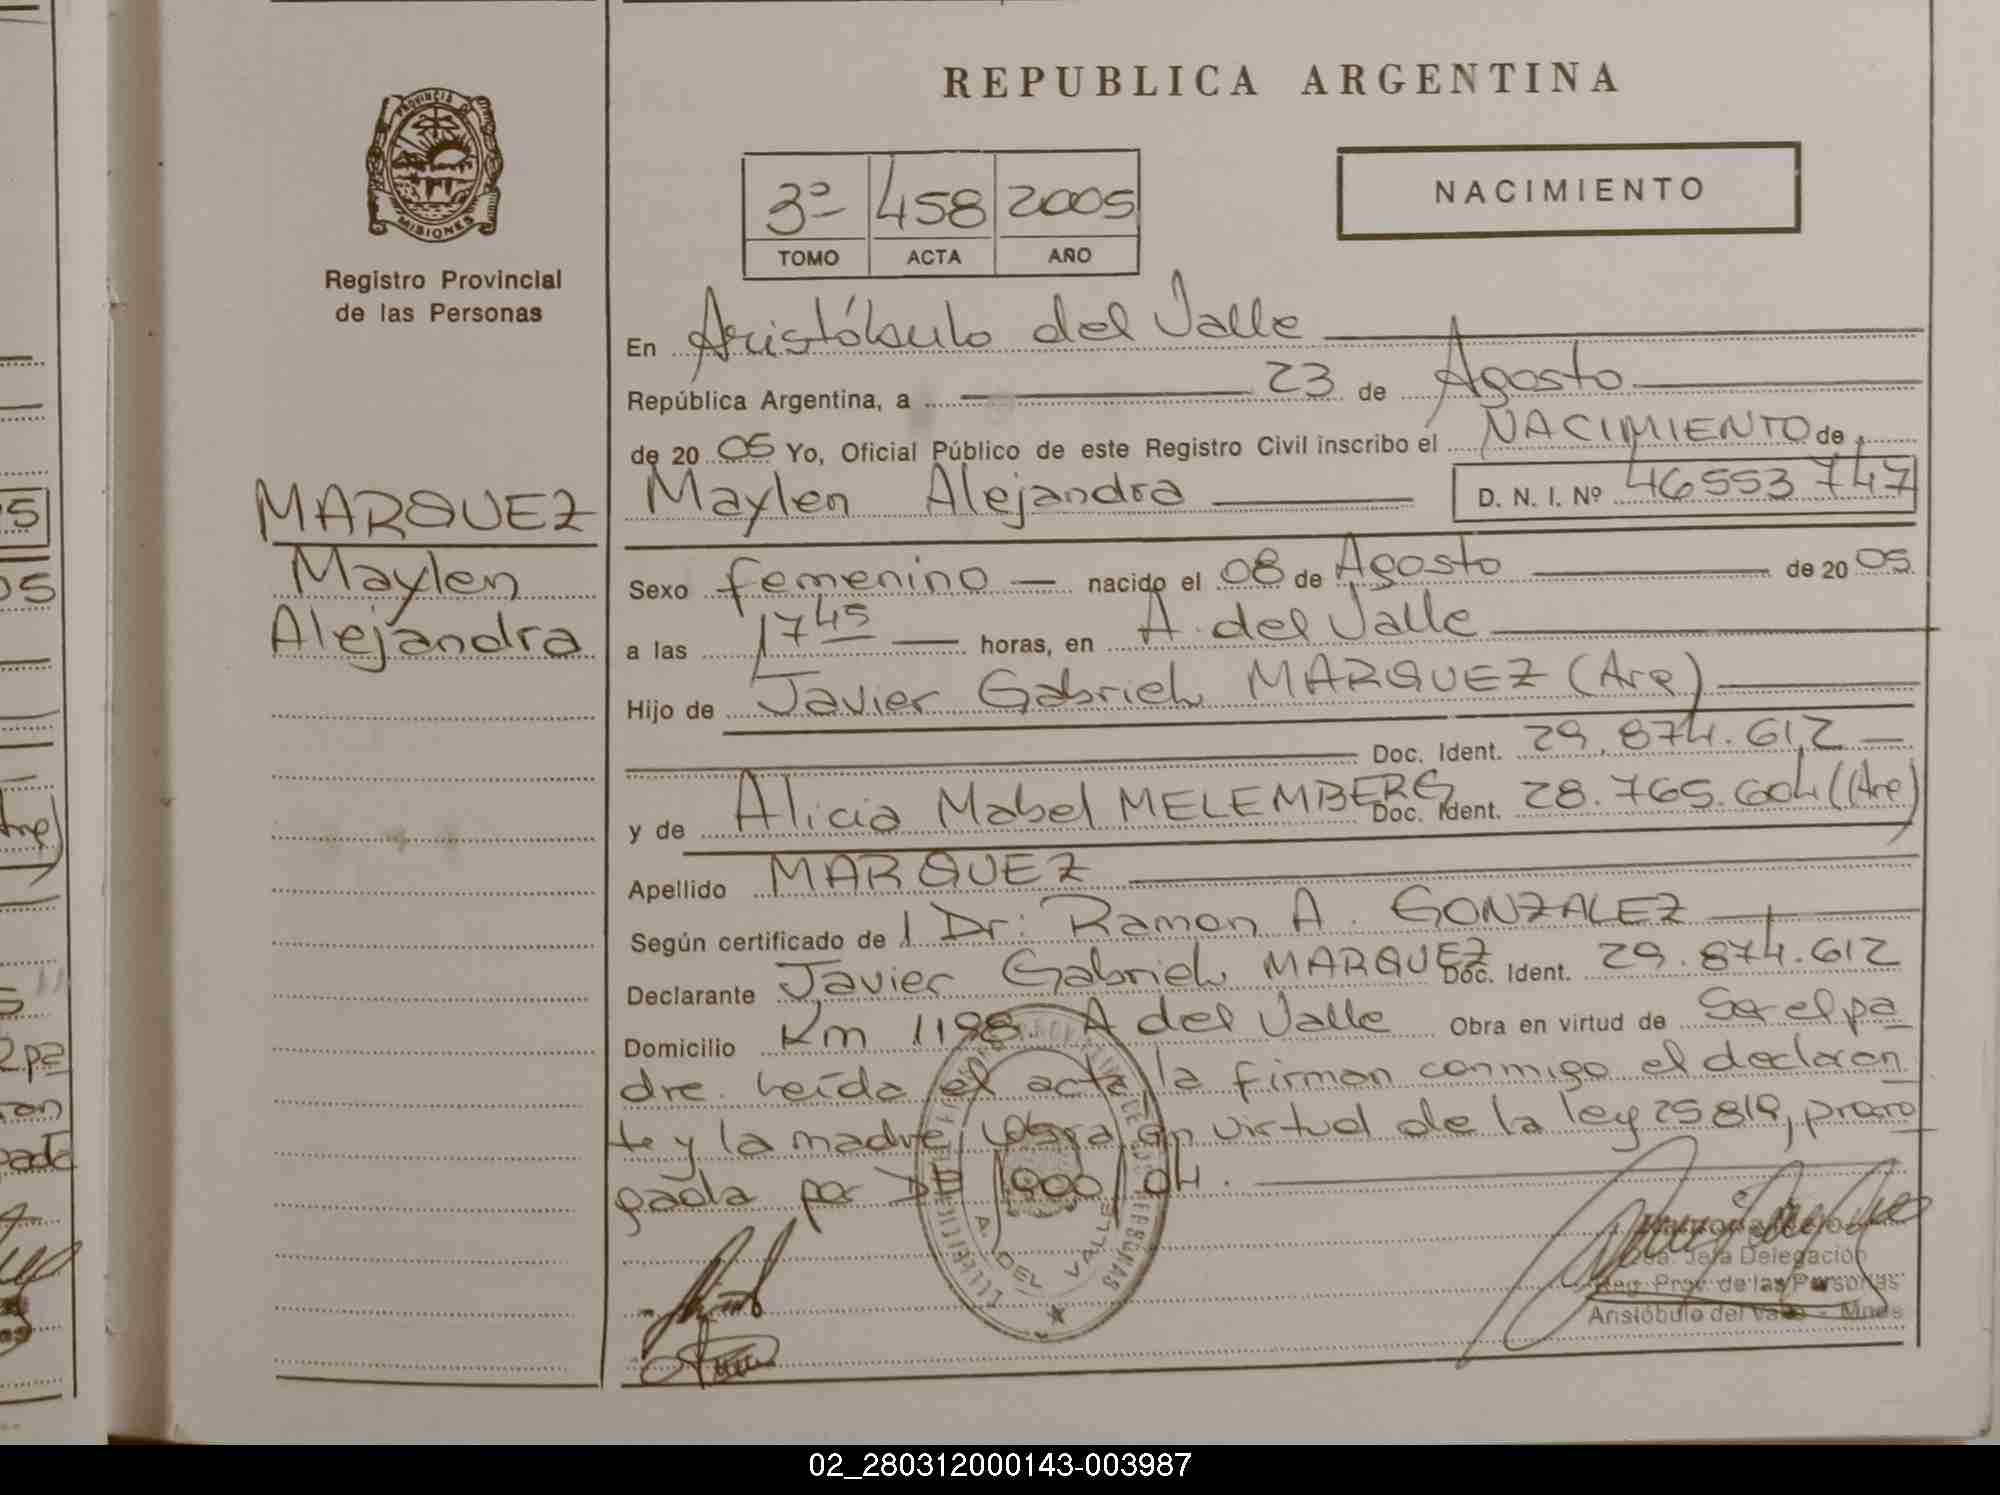 REPUBLICA ARGENTINA
PROVINCIA DE
MISIONES
Registro Provincial
de las Personas
3º 458 2005
TOMO ACTA AÑO
NACIMIENTO
En Aristóbulo del Valle
República Argentina, a 23 de Agosto
de 20 05 Yo, Oficial Público de este Registro Civil inscribo el NACIMIENTO de
Maylen Alejandra D. N. I. Nº 46553747
MARQUEZ
Maylen
Alejandra
Sexo femenino nacido el 08 de Agosto de 20 05
a las 17 45 horas, en A. del Valle
Hijo de Javier Gabriel MARQUEZ (Arg)
Doc. Ident. 29.874.612
y de Alicia Mabel MELEMBERG Doc. Ident. 28.765.604 (Arg)
Apellido MARQUEZ
Según certificado de l Dr: Ramon A. GONZALEZ
Declarante Javier Gabriel MARQUEZ Doc. Ident. 29.874.612
Domicilio Km 1198 A del Valle Obra en virtud de Ser el pa
dre. Leída el acta, la firman conmigo el declaran
te y la madre, Obra en virtud de la ley 25819, prorro
gada por DE 1900/04.
A. DEL VALLE
Jefa Delegación
Reg. Prov. de las Personas
Aristóbulo del Valle - Mnes
02_280312000143-003987